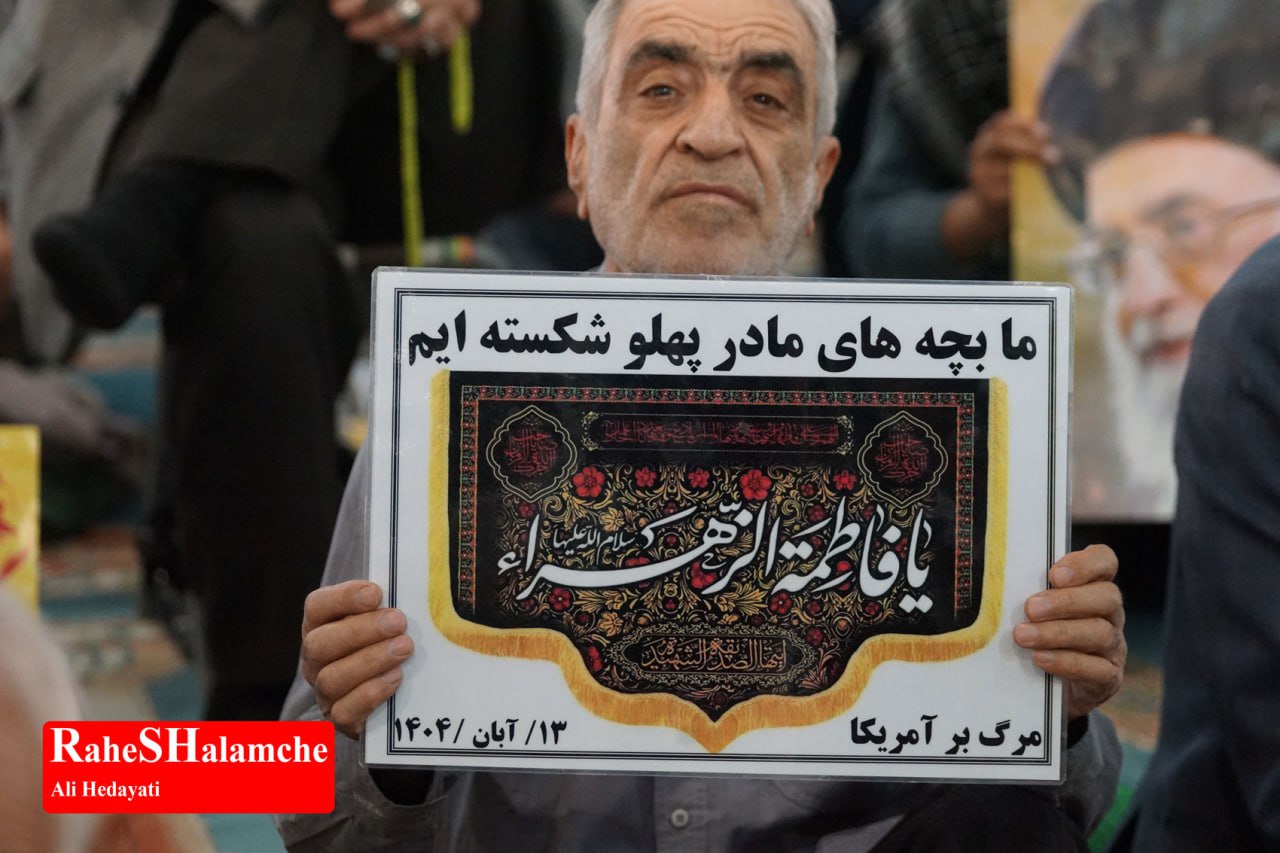 ما بچه های مادر پهلو شکسته ایم
یا فاطِمَةَ الزَّهراء
سلام‌الله‌علیها
ایتها الصدیقه الشهیده
مرگ بر آمریکا
۱۳/ آبان /۱۴۰۴
RaheSHalamche
Ali Hedayati